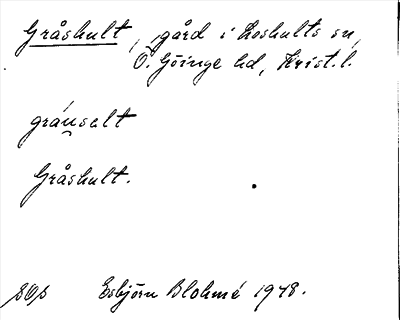 Gråshult, gård i Loshults sn,
Ö. Göinge hd, Krist. l.
gráu̯salt
Gråshult.
Esbjörn Blohmé 1948.